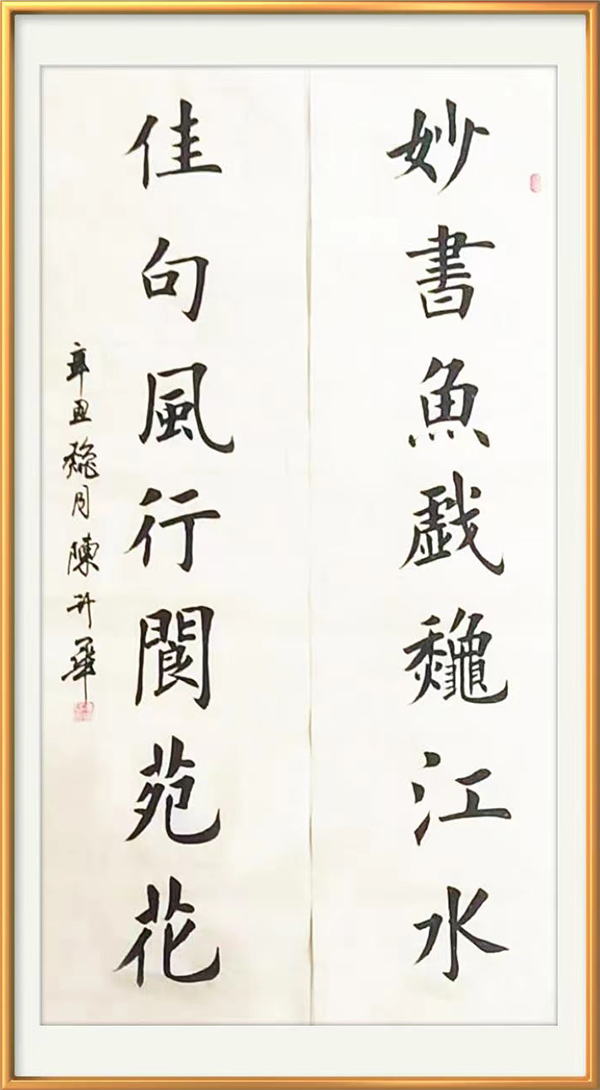 妙書魚戲龝江水
佳句風行閬苑花
辛丑龝月陳許華